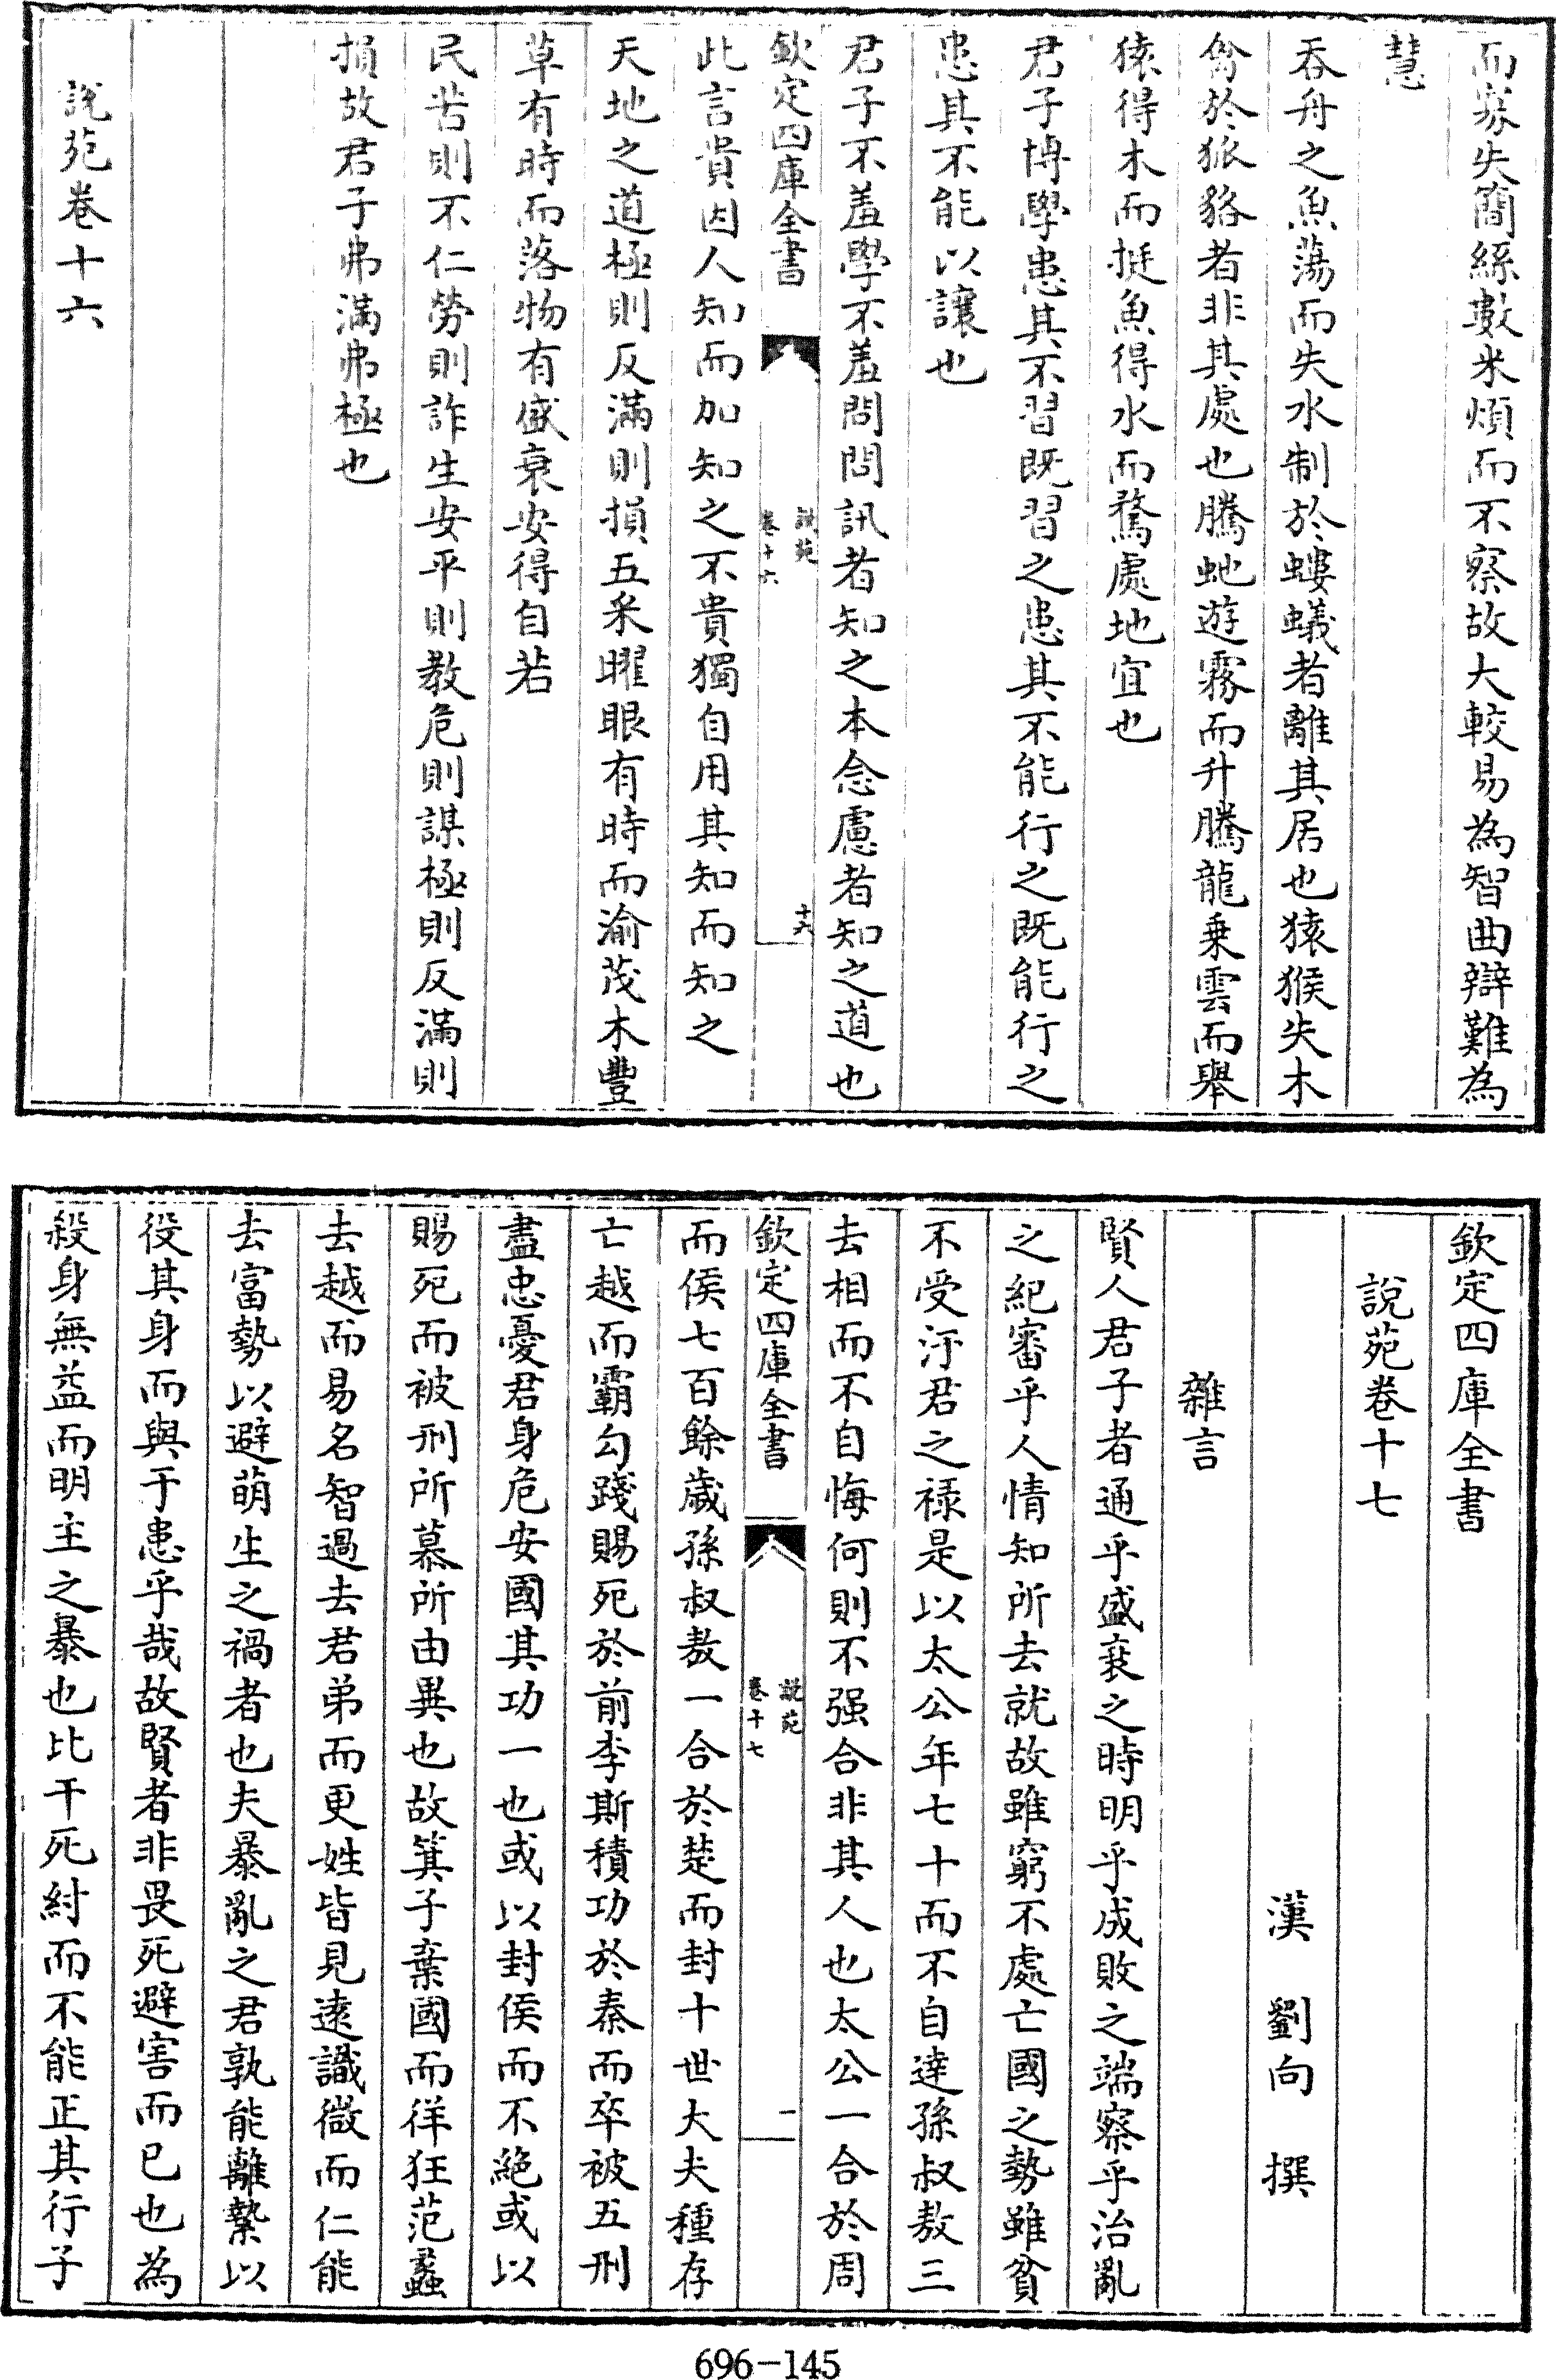 而寡失簡絲數米煩而不察故大較易為智曲辯難為
慧
吞舟之魚蕩而失水制於螻蟻者離其居也猿猴失木
禽於狐貉者非其處也騰虵遊霧而升騰龍乗雲而舉
猿得木而挺魚得水而騖處地宜也
君子博學患其不習既習之患其不能行之既能行之
患其不能以讓也
君子不羞學不羞問問訊者知之本念慮者知之道也
欽定四庫全書
說苑
卷十六
十六
此言貴因人知而加知之不貴獨自用其知而知之
天地之道極則反滿則損五采曜眼有時而渝茂木豐
草有時而落物有盛衰安得自若
民苦則不仁勞則詐生安平則教危則謀極則反滿則
損故君子弗滿弗極也
說苑卷十六
欽定四庫全書
說苑卷十七
漢 劉向 撰
雜言
賢人君子者通乎盛衰之時明乎成敗之端察乎治亂
之紀審乎人情知所去就故雖窮不處亡國之勢雖貧
不受汙君之禄是以太公年七十而不自達孫叔敖三
去相而不自悔何則不强合非其人也太公一合於周
欽定四庫全書
說苑
卷十七
一
而侯七百餘歲孫叔敖一合於楚而封十世大夫種存
亡越而霸勾踐賜死於前李斯積功於秦而卒被五刑
盡忠憂君危身安國其功一也或以封侯而不絶或以
賜死而被刑所慕所由異也故箕子棄國而徉狂范蠡
去越而易名智過去君弟而更姓皆見逺識微而仁能
去富勢以避萌生之禍者也夫暴亂之君孰能離縶以
役其身而與于患乎哉故賢者非畏死避害而已也為
殺身無益而明主之暴也比干死紂而不能正其行子
696-145